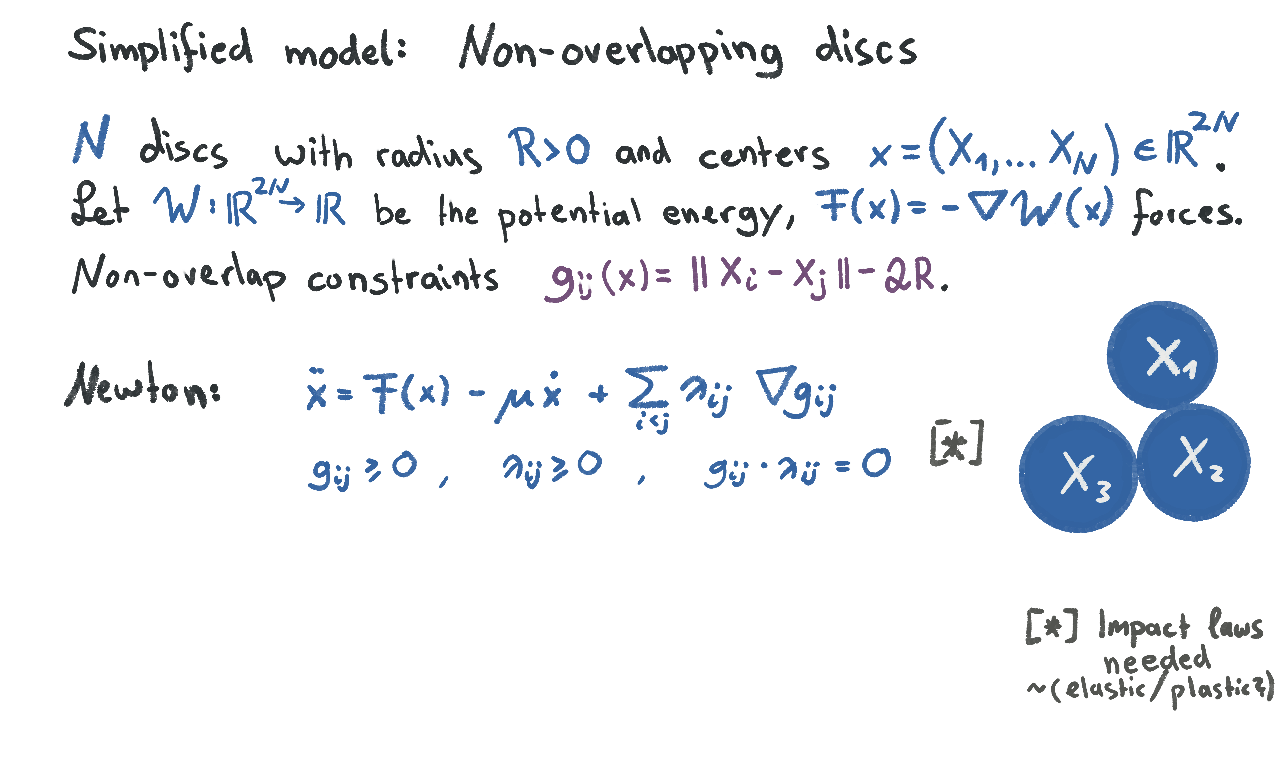 Simplified model: Non-overlapping discs
N discs with radius R>0 and centers x = (X₁,... X_N) ∈ ℝ²ᴺ.
Let W: ℝ²ᴺ → ℝ be the potential energy, F(x) = - ∇W(x) forces.
Non-overlap constraints g_ij(x) = ‖X_i - X_j‖ - 2R.
Newton: ẍ = F(x) - μẋ + ∑_{i<j} λ_ij ∇g_ij
g_ij ≥ 0 , λ_ij ≥ 0 , g_ij · λ_ij = 0 [*]
X₁
X₃ X₂
[*] Impact laws
needed
~(elastic/plastic?)